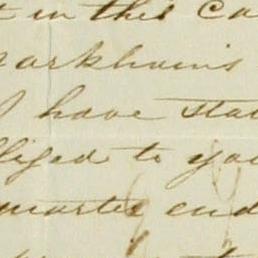 t in this Ca
arkhams
I have stat
lliged to you
quarter end